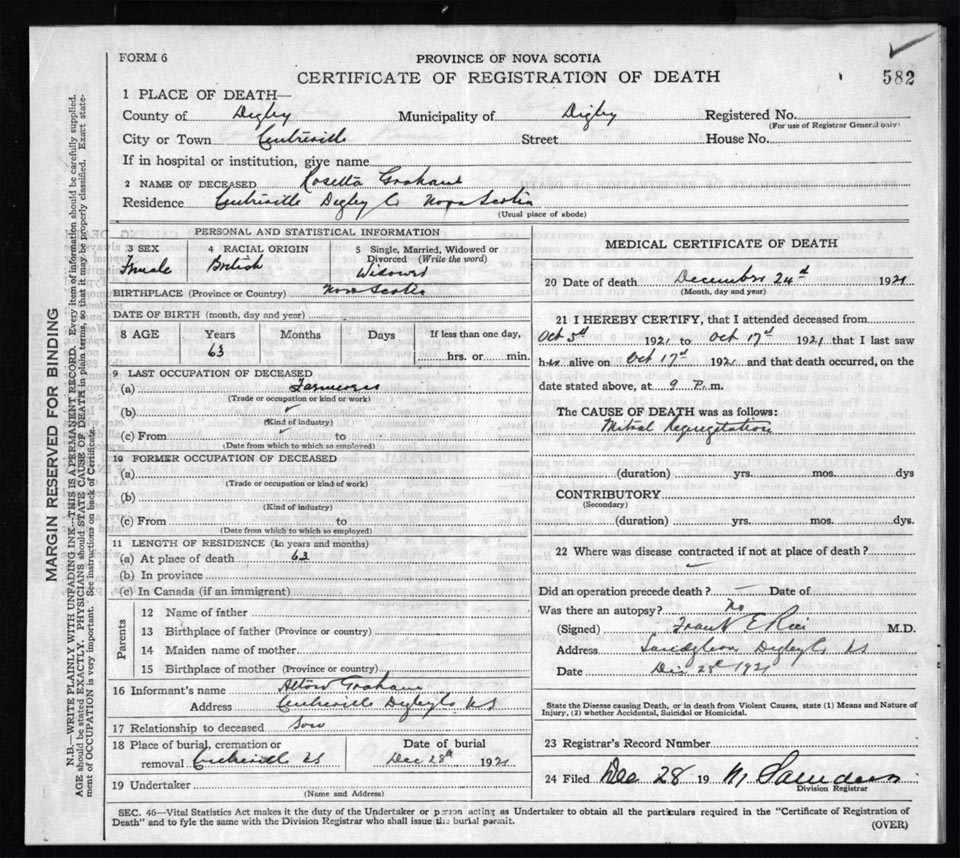 FORM 6
PROVINCE OF NOVA SCOTIA
CERTIFICATE OF REGISTRATION OF DEATH
582
1 PLACE OF DEATH—
County of Digby Municipality of Digby Registered No.
(For use of Registrar General only)
City or Town Centreville Street House No.
If in hospital or institution, give name
2 NAME OF DECEASED Rosetta Graham
Residence Centreville Digby Co Nova Scotia
(Usual place of abode)
PERSONAL AND STATISTICAL INFORMATION
3 SEX 4 RACIAL ORIGIN 5 Single, Married, Widowed or Divorced (Write the word)
Female British Widowed
BIRTHPLACE (Province or Country) Nova Scotia
DATE OF BIRTH (month, day and year)
8 AGE Years Months Days If less than one day,
63 hrs. or min.
9 LAST OCCUPATION OF DECEASED
(a)
(Trade or occupation or kind or work)
(b)
(Kind of industry)
(c) From to
(Date from which to which so employed)
10 FORMER OCCUPATION OF DECEASED
(a)
(Trade or occupation or kind of work)
(b)
(Kind of industry)
(c) From to
(Date from which to which so employed)
11 LENGTH OF RESIDENCE (In years and months)
(a) At place of death 63
(b) In province
(c) In Canada (if an immigrant)
Parents
12 Name of father
13 Birthplace of father (Province or country)
14 Maiden name of mother
15 Birthplace of mother (Province or country)
16 Informant's name Alton Graham
Address Centreville Digby Co NS
17 Relationship to deceased Son
18 Place of burial, cremation or Date of burial
removal Centreville NS Dec 28th 1921
19 Undertaker
(Name and Address)
MEDICAL CERTIFICATE OF DEATH
20 Date of death December 24th 1921
(Month, day and year)
21 I HEREBY CERTIFY, that I attended deceased from
Oct 5th 1921 to Oct 17th 1921 that I last saw
her alive on Oct 17th 1921 and that death occurred, on the
date stated above, at 9 P. m.
The CAUSE OF DEATH was as follows:
Mitral Regurgitation
(duration) yrs. mos. dys
CONTRIBUTORY
(Secondary)
(duration) yrs. mos. dys.
22 Where was disease contracted if not at place of death?
Did an operation precede death? — Date of
Was there an autopsy? No
(Signed) Frank E Rice M.D.
Address Sandy Cove Digby Co NS
Date Dec 28th 1921
State the Disease causing Death, or in death from Violent Causes, state (1) Means and Nature of
Injury, (2) whether Accidental, Suicidal or Homicidal.
23 Registrar's Record Number
24 Filed Dec 28 19 Saunders
Division Registrar
SEC. 46—Vital Statistics Act makes it the duty of the Undertaker or person acting as Undertaker to obtain all the particulars required in the "Certificate of Registration of
Death" and to fyle the same with the Division Registrar who shall issue the burial permit.
(OVER)
MARGIN RESERVED FOR BINDING
N.B.—WRITE PLAINLY WITH UNFADING INK—THIS IS A PERMANENT RECORD. Every item of information should be carefully supplied.
AGE should be stated EXACTLY. PHYSICIANS should STATE CAUSE OF DEATH in plain terms, so that it may be properly classified. Exact state-
ment of OCCUPATION is very important. See instructions on back of Certificate.